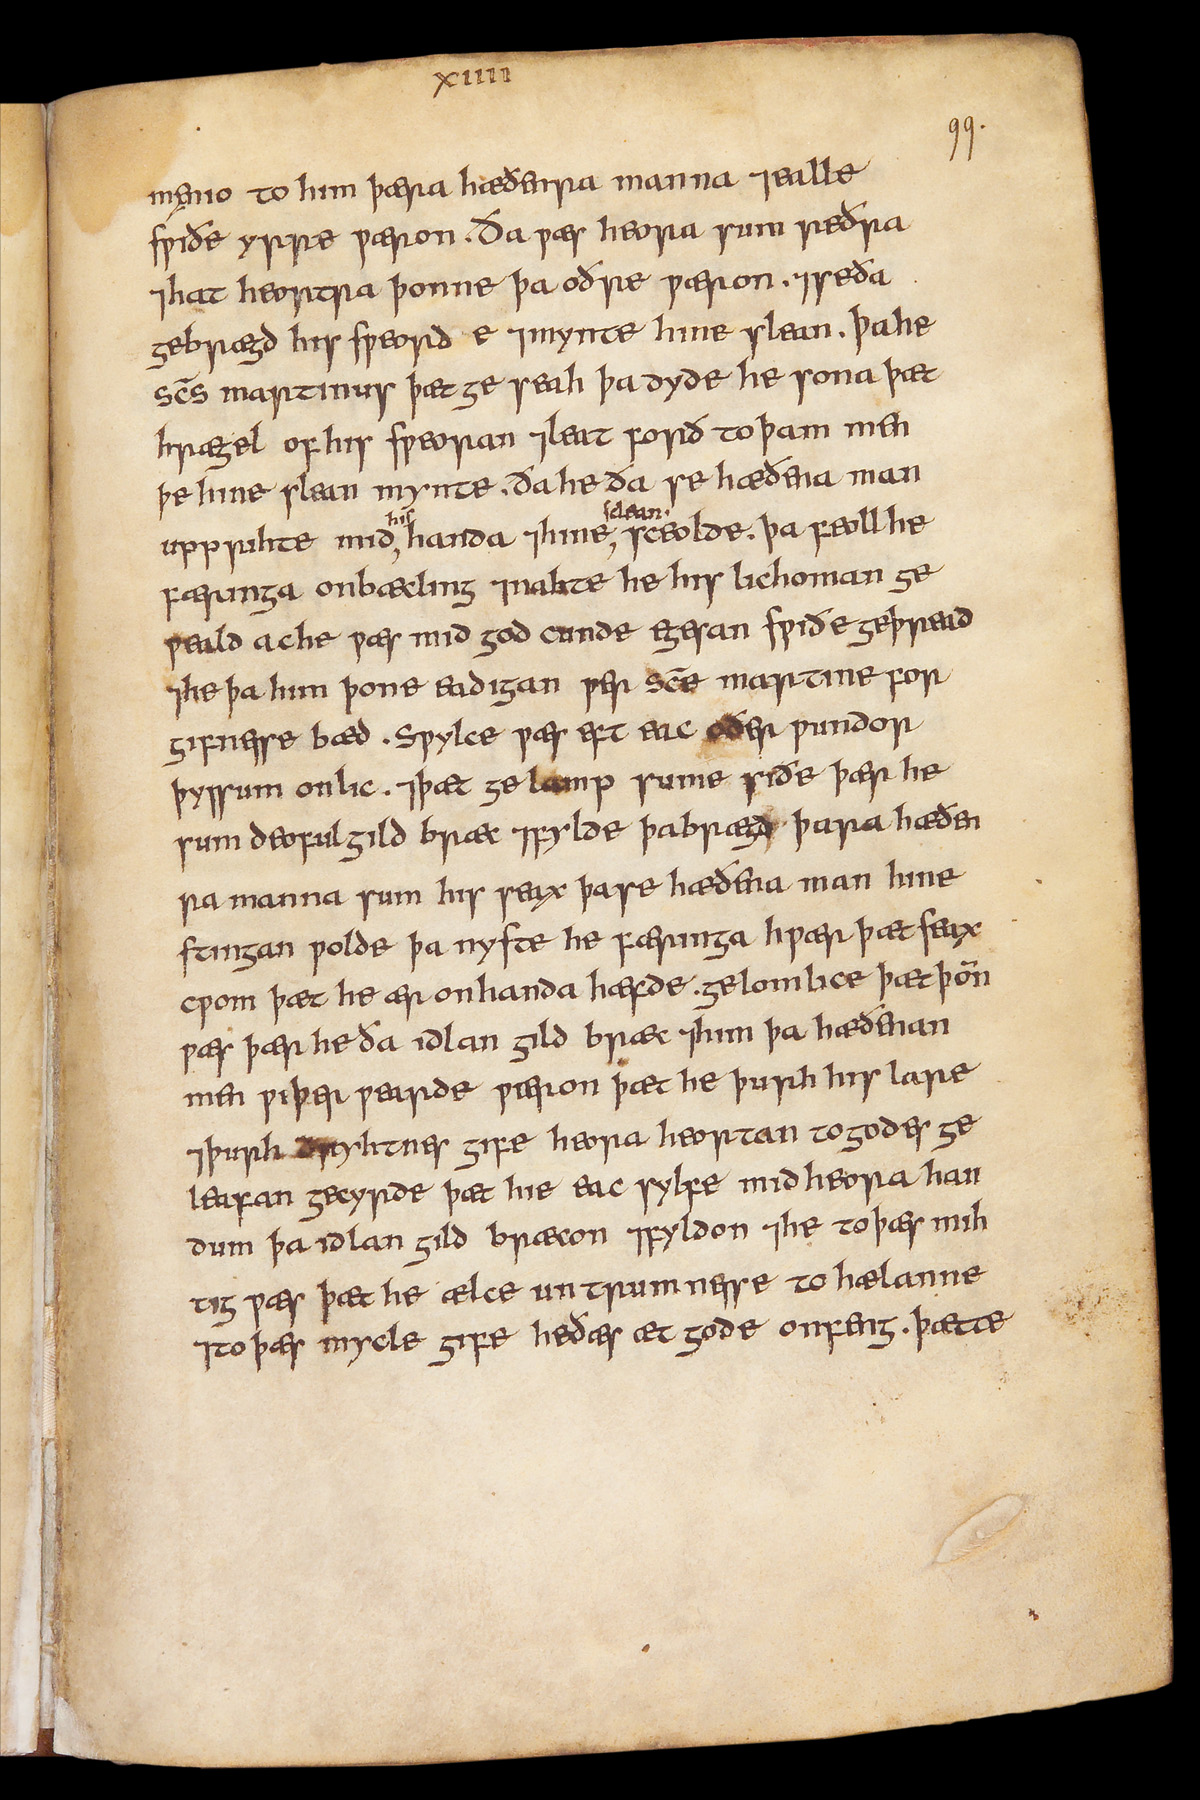 xiiii
99.
menio to him þæra hæðenra manna ⁊ealle
sƿiðe yrre ƿæron. Ða ƿæs heora sum reðra
⁊hat heortra þonne þa oðre ƿæron. ⁊seða
gebrægd his sƿeord e ⁊mynte hine slean. þa he
sc̄s martinus þæt ge seah þa dyde he sona þæt
hrægel of his sƿeoran ⁊leat forð to þam men
þe hine slean mynte. ða he ða se hæðena man
upp rihte mid, handa ⁊hine, sceolde. þa feoll he
his̄ slean.
færinga onbæcling ⁊nahte he his lichoman ge
ƿeald ac he ƿæs mid god cunde egesan sƿiðe geþread
⁊he þa him þone eadigan ƿer sc̄e martine for
gifnesse bæd. Sƿylce ƿæs eft eac oðer ƿundor
þyssum onlic. ⁊þæt ge lamp sume siðe þær he
sum deoful gild bræc ⁊fylde þa brægd þara hæðen
ra manna sum his seax þa se hæðena man hine
stingan ƿolde þa nyste he færinga hƿær þæt seax
cƿom þæt he ær on handa hæfde. gelomlice þæt þoñ
ƿæs þær he ða idlan gild bræc ⁊him þa hæðenan
men ƿiþer ƿearde ƿæron þæt he þurh his lare
⁊þurh dryhtnes gife heora heortan to godes ge
leafan gecyrde þæt hie eac sylfe mid heora han
dum þa idlan gild bræcon ⁊fyldon ⁊he to þæs mih
tig ƿæs þæt he ælce un trumnesse to hælanne
⁊to þæs mycle gife he ðæs æt gode onfeng. þætte